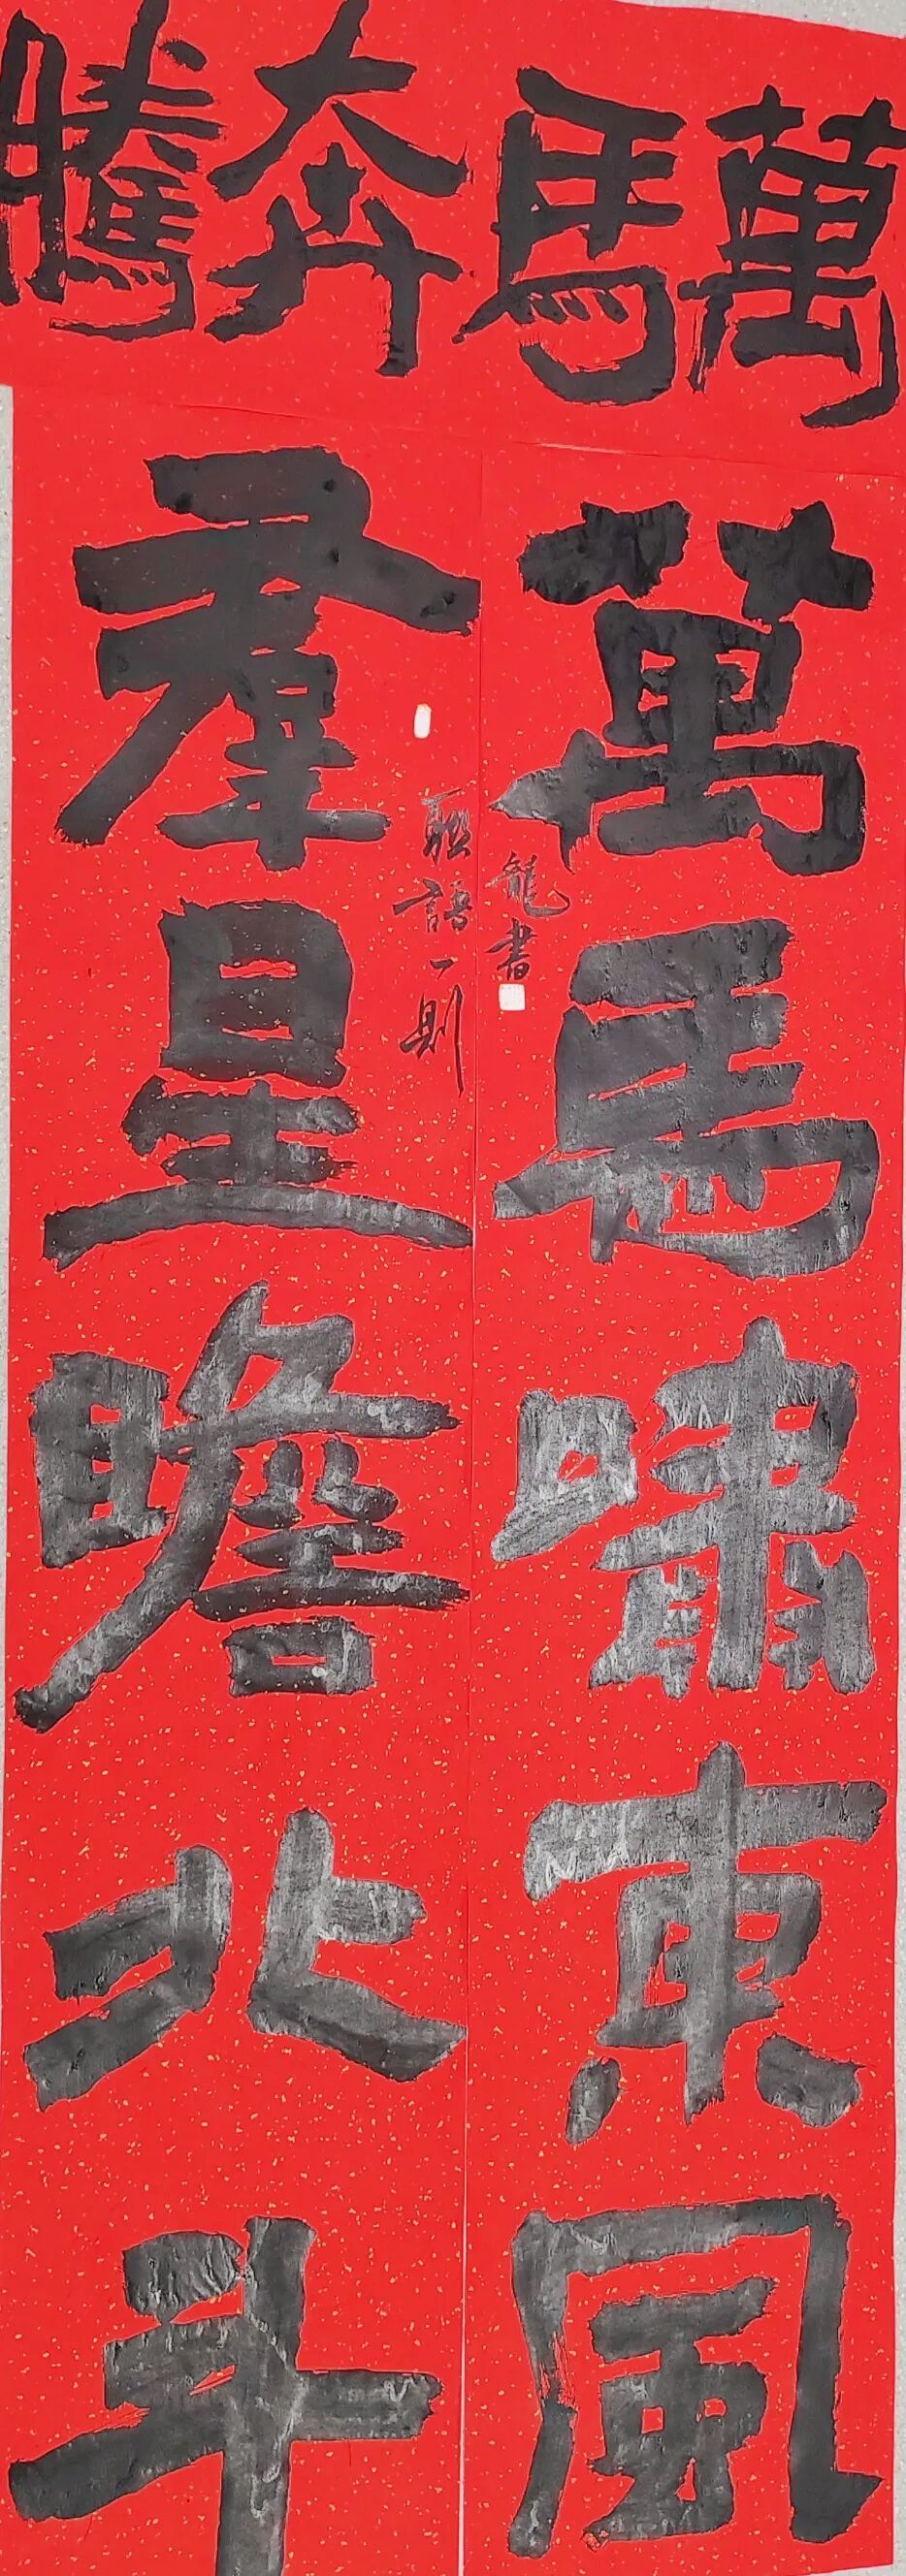 萬馬奔騰
萬馬嘯東風
龍書
聯語一則
羣星瞻北斗